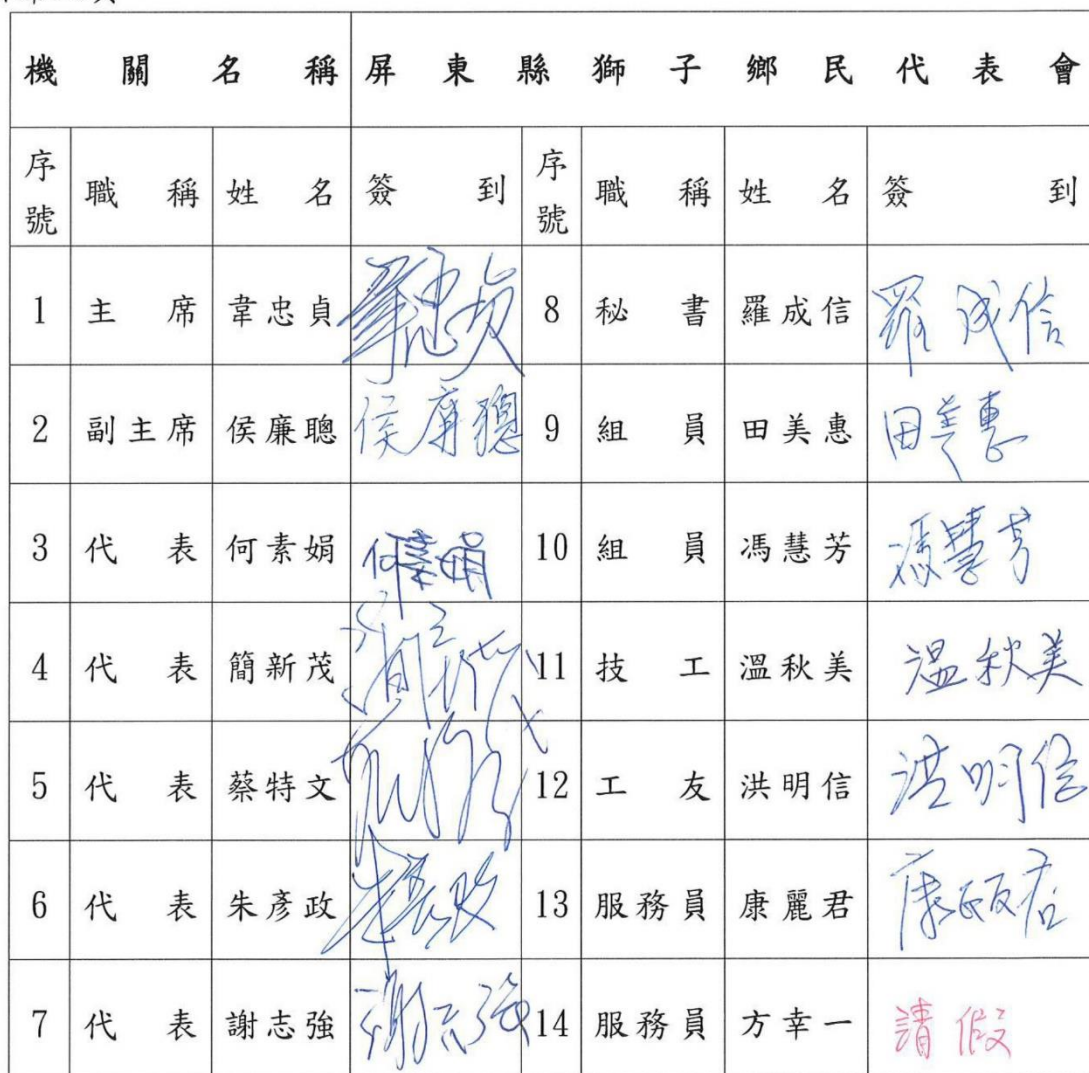 機關名稱 屏東縣獅子鄉民代表會
序號 職稱 姓名 簽到 序號 職稱 姓名 簽到
1 主席 韋忠貞 韋忠貞 8 秘書 羅成信 羅成信
2 副主席 侯廉聰 侯廉聰 9 組員 田美惠 田美惠
3 代表 何素娟 何素娟 10 組員 馮慧芳 馮慧芳
4 代表 簡新茂 簡新茂 11 技工 溫秋美 溫秋美
5 代表 蔡特文 12 工友 洪明信 洪明信
6 代表 朱彥政 朱彥政 13 服務員 康麗君 康麗君
7 代表 謝志強 謝志強 14 服務員 方幸一 請假